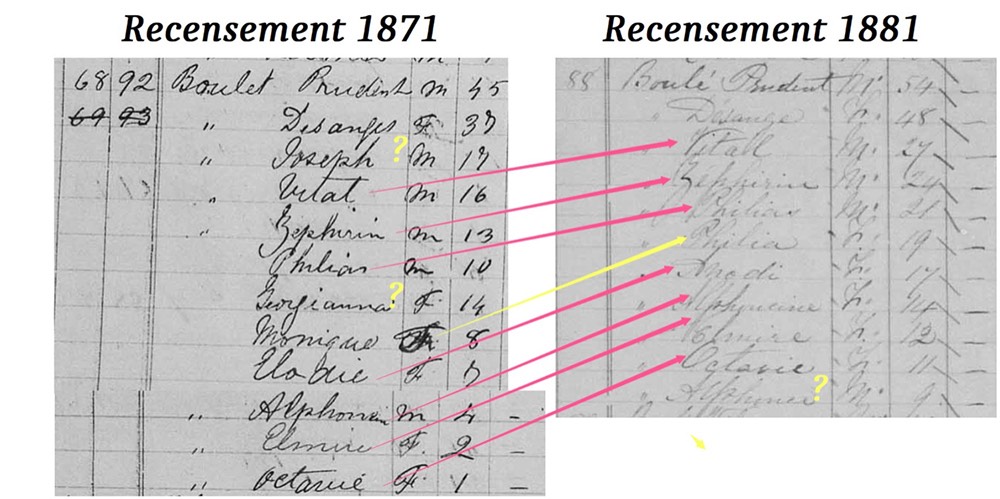 Recensement 1871
68 92 Boulet Prudent m 45
69 93 " Desanges F 37
" Joseph ? m 17
" Vital m 16
" Zephirin m 13
Philias m 10
Georgianna ? F 14
Monique F 8
Elodie F
" Alphonsin m 4 -
" Elmire F. 2 -
" Octavie F. 1 -
Recensement 1881
88 Boulé Prudent M. 54 -
" Desange 48 -
" Vitall M. 27 -
" Zephirin M. 24 -
" Philias M. 21 -
" 19 -
" 17 -
" Alphonsine 14 -
" Elmire -
" Octavie 11 -
" ? M. 9 -